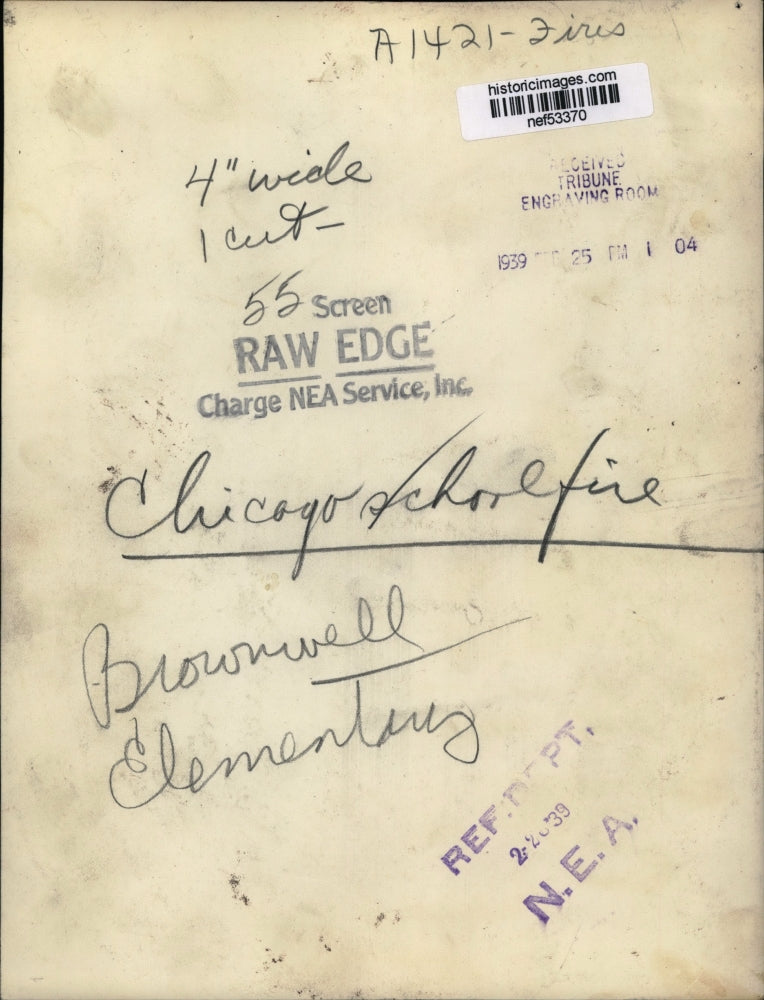 A1421-Fires
historicimages.com
nef53370
4" wide
1 cut-
RECEIVED
TRIBUNE
ENGRAVING ROOM
1939 25 PM 1 04
55 Screen
RAW EDGE
Charge NEA Service, Inc.
Chicago school fire
Brownwell
Elementary
REF. DEPT.
39
N.E.A.